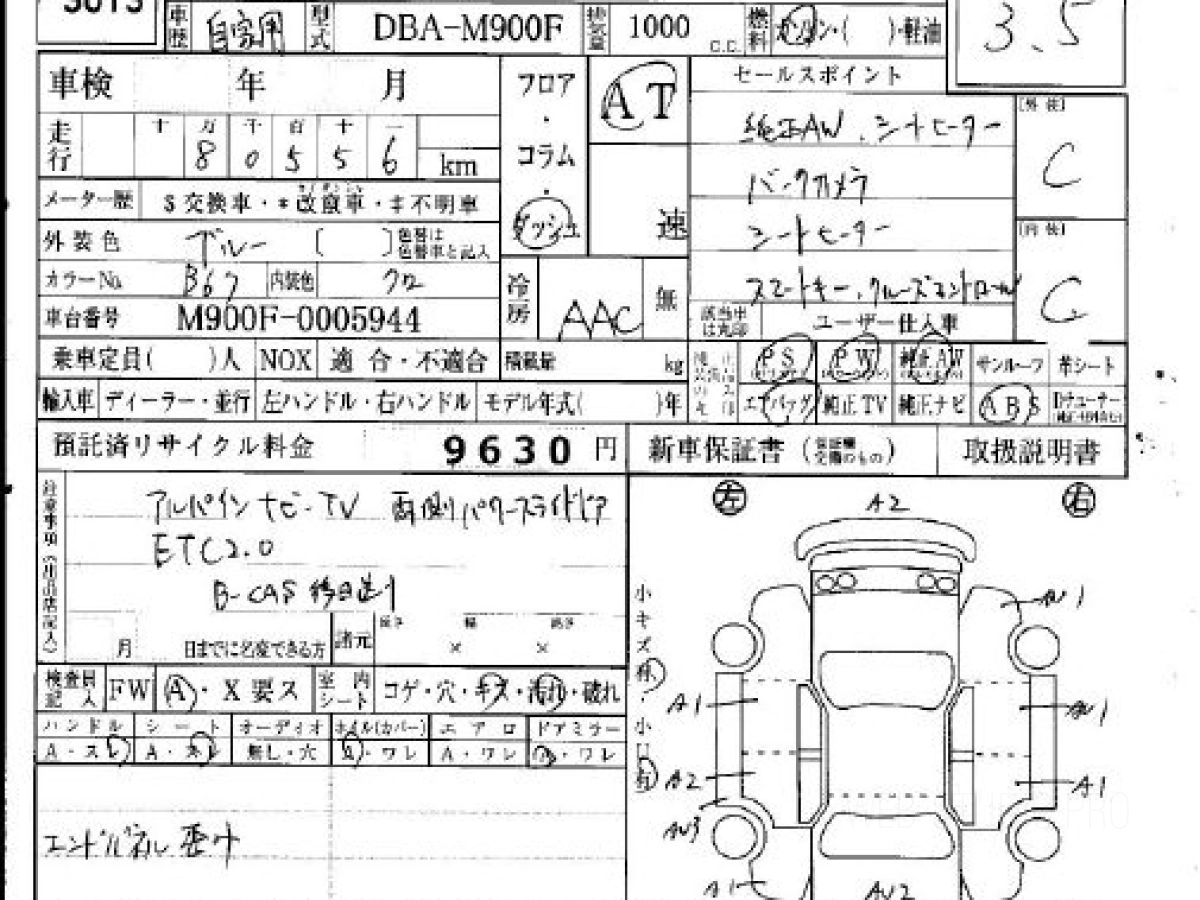 5013
車歴 自家用 型式 DBA-M900F 排気量 1000 C.C. 燃料 ガソリン・( )・軽油
3.5
車検 年 月 フロア・コラム・ダッシュ AT 速 セールスポイント
[外装] C
[内装] C
走行 十 万 千 百 十 一
8 0 5 5 6 km
純正AW. シートヒーター
バックカメラ
シートヒーター
スマートキー. クルーズコントロール
メーター歴 $交換車・*改竄車・‡不明車
外装色 ブルー ( ) 色替は色替車と記入
カラーNo. B67 内装色 クロ
冷房 AAC 無
車台番号 M900F-0005944
該当中は丸印 ユーザー仕入車
乗車定員( )人 NOX 適合・不適合 積載量 kg
PS PW 純正AW サンルーフ 革シート
輸入車 ディーラー・並行 左ハンドル・右ハンドル モデル年式( )年
エアバッグ 純正TV 純正ナビ ABS Dチューナー
預託済リサイクル料金 9630 円 新車保証書 (保証書 交換のもの) 取扱説明書
注意事項(出品店記入)
アルパインナビ・TV 両側パワースライドドア
ETC2.0
B-CAS 後日送り
月 日までに名変できる方 諸元 長さ × 幅 × 高さ
検査員記入 FW A・X要ス 室内シート コゲ・穴・キズ・汚れ・破れ
ハンドル シート オーディオ ホイル(カバー) エアロ ドアミラー
A・スレ A・スレ 無し・穴 A・ワレ A・ワレ A・ワレ
エンドパネル歪み
左 A2 右
小キズ
小凹
AU1
A1
AU1
A2
A1
AU3
A1
AU2